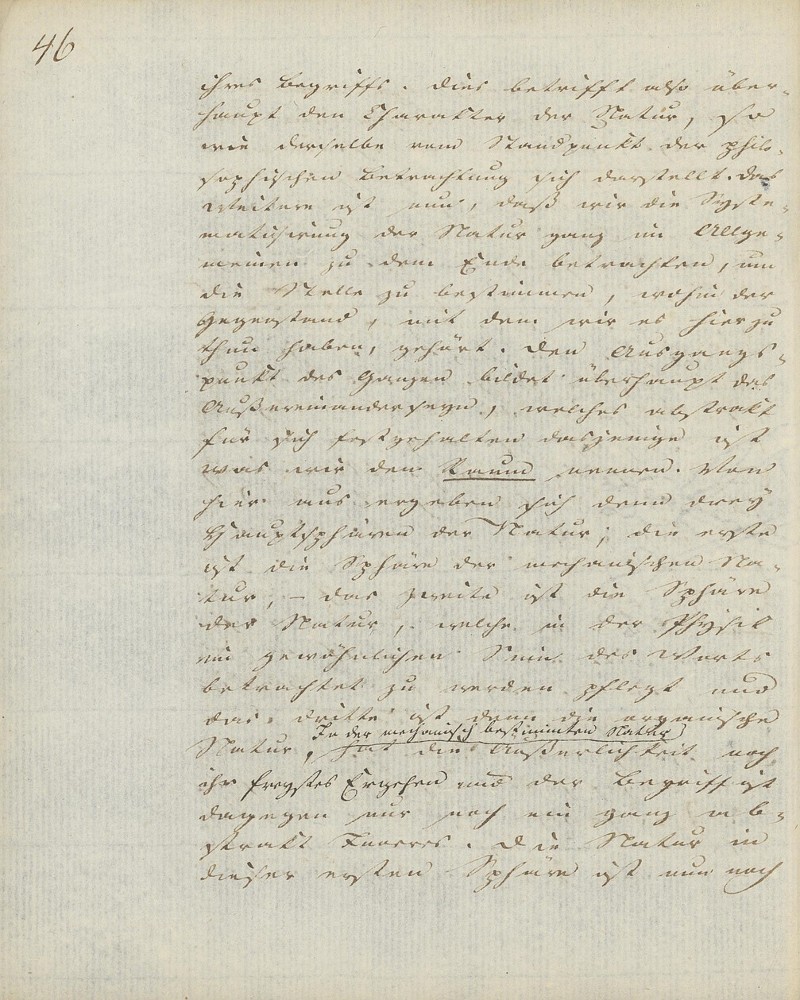 46
ihres Begriffs. Dies betrifft also über-
haupt den Charakter der Natur, so
wie derselbe vom Standpunkt der philo-
sophischen Betrachtung sich darstellt. Das
Weitere ist nun, daß wir die Syste-
matisirung der Natur ganz im Allge-
meinen zu dem Ende betrachten, um
die Stelle zu bestimmen, wohin der
Gegenstand, mit dem wir es hier zu
thun haben, gehört. Den Ausgangs-
punkt des Ganzen bildet überhaupt das
Außereinanderseyn, welches abstrakt
für sich festgehalten dasjenige ist
was wir den Raum nennen. Von
hier aus ergeben sich denn drey
Hauptsphären der Natur; die erste
ist die Sphäre der mechanischen Na-
tur, – das zweite ist die Sphäre
der Natur, welche in der Physik
im gewöhnlichen Sinn des Worts
betrachtet zu werden pflegt und
das dritte ist denn die organische
In der mechanisch bestimmten Natur
Natur, hat die Äußerlichkeit noch
ihr freystes Ergehen und der Begriff ist
dagegen nur noch ein ganz ab-
strakt Inneres. Die Natur in
dieser ersten Sphäre ist nun noch